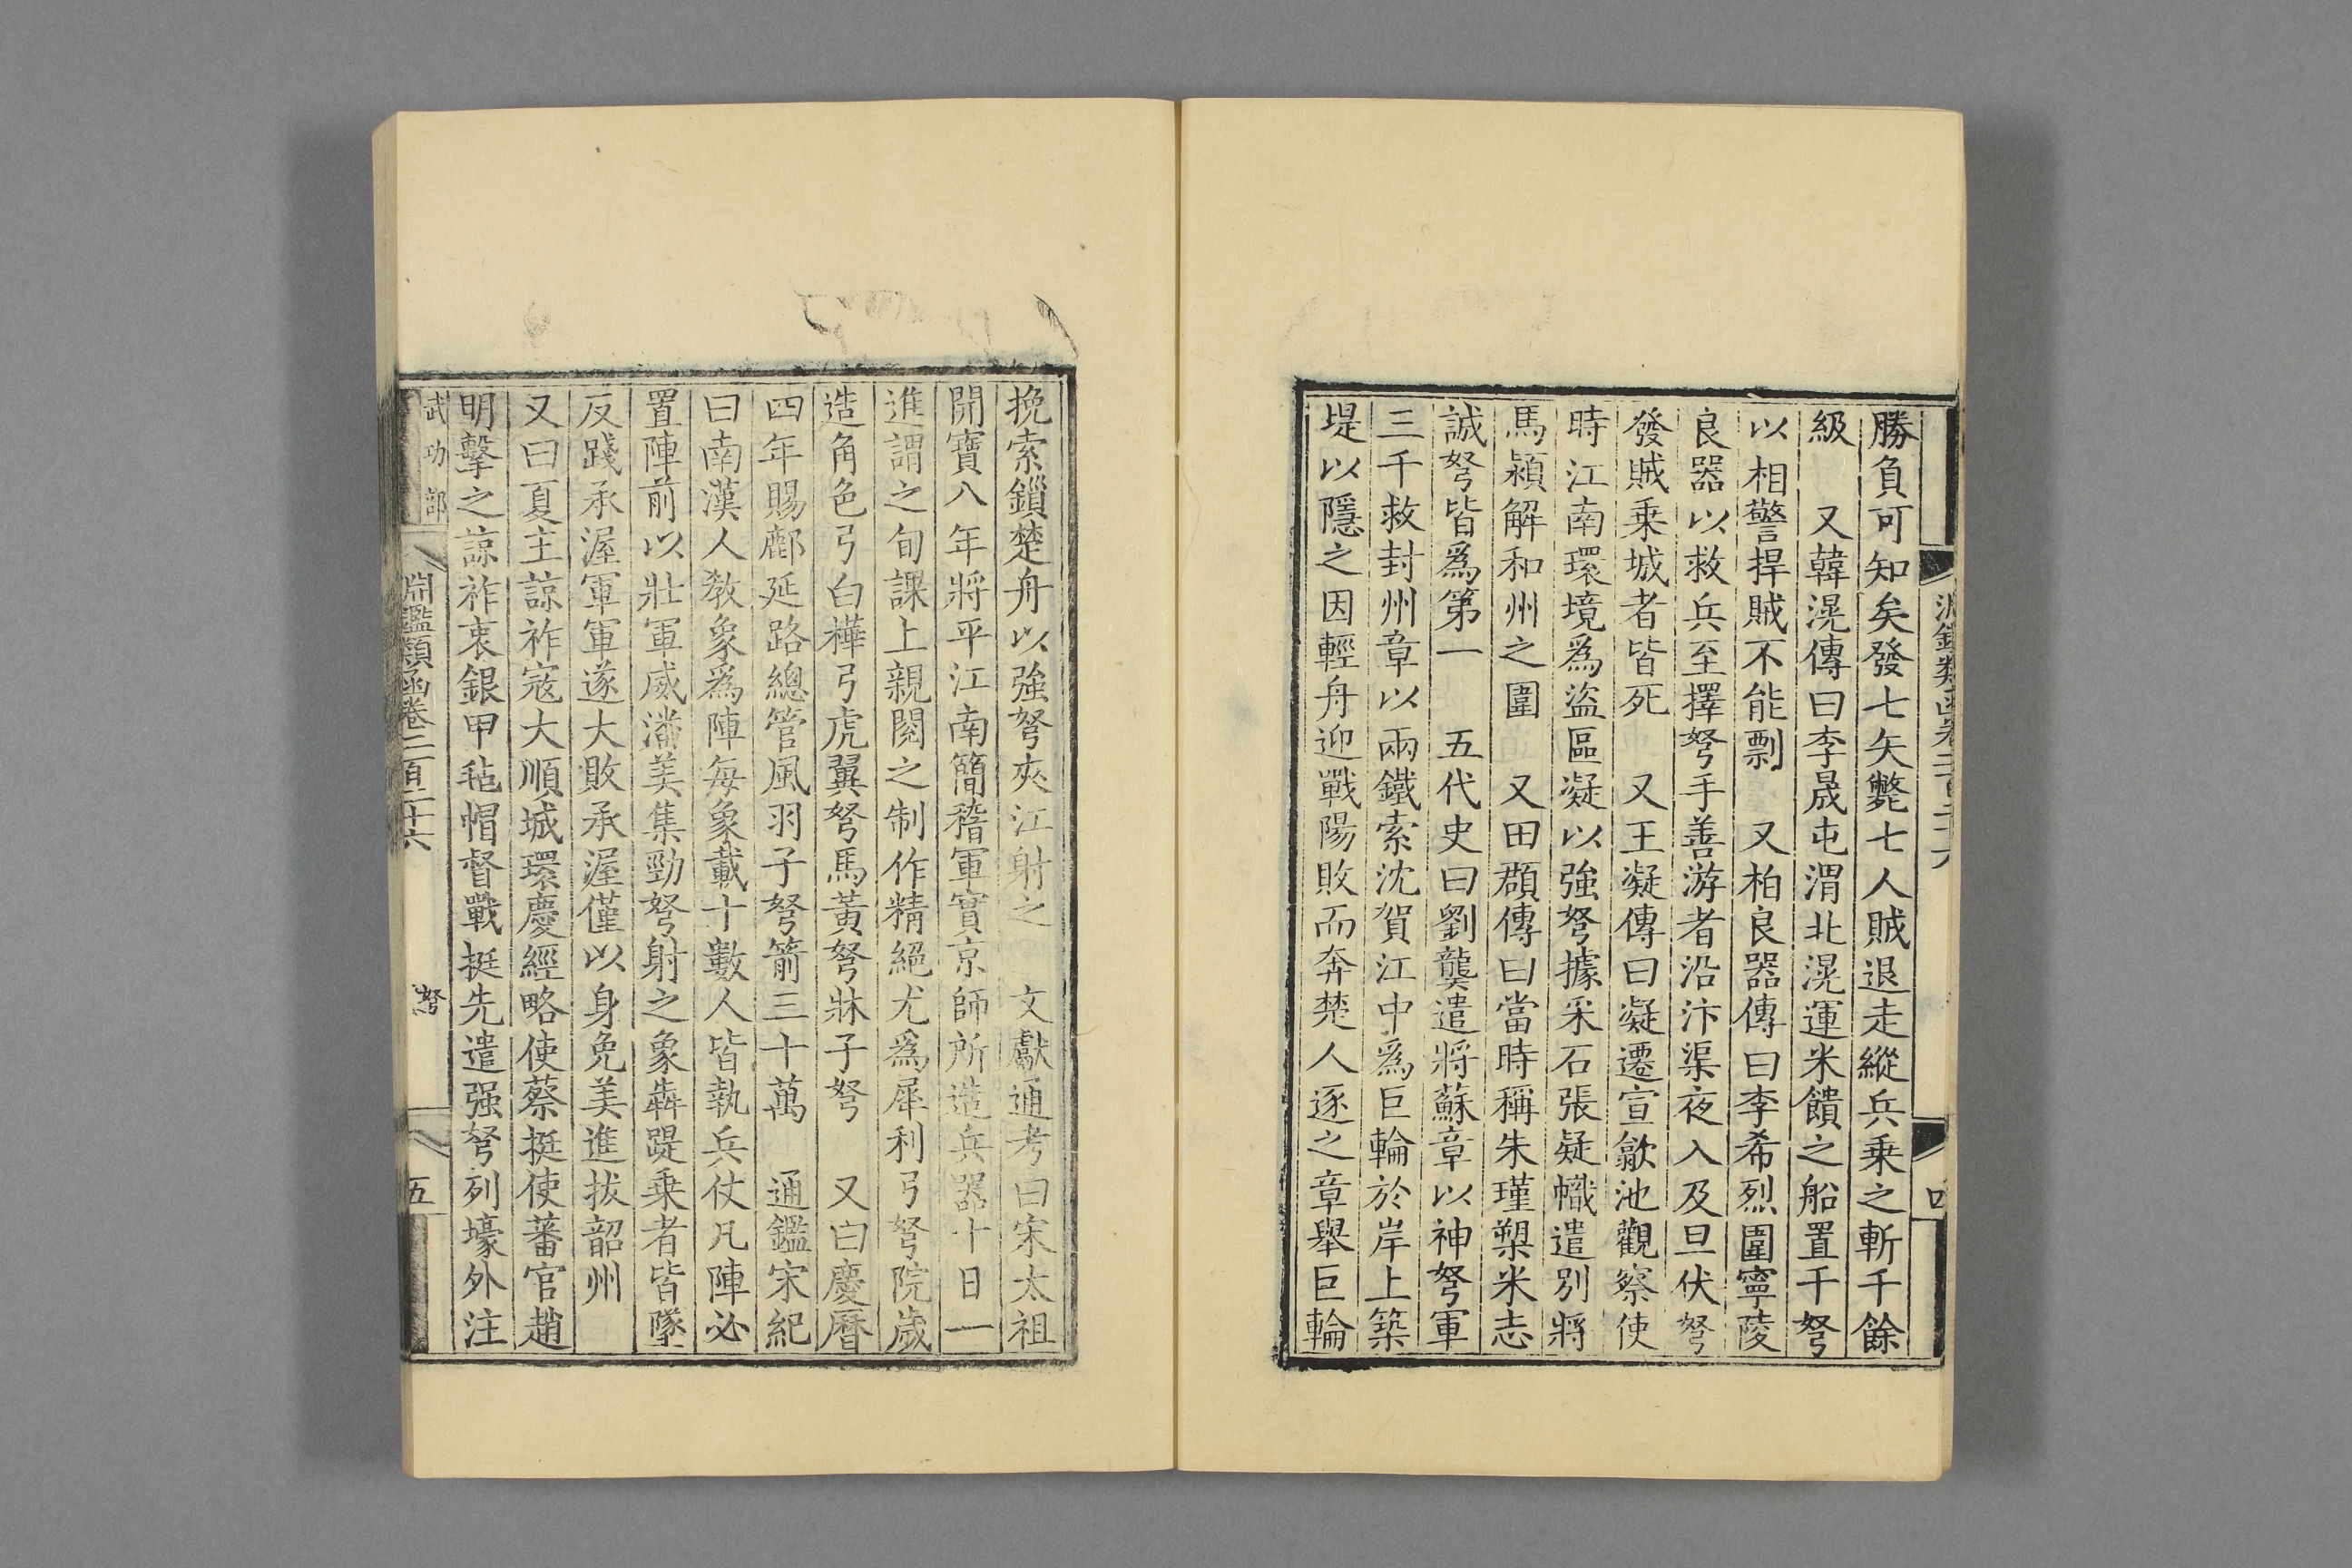 勝負可知矣發七矢斃七人賊退走縱兵乗之斬千餘
級　又韓滉傳曰李晟屯渭北滉運米饋之船置千弩
以相警捍賊不能剽　又柏良器傳曰李希烈圍寧陵
良器以救兵至擇弩手善游者沿汴渠夜入及旦伏弩
發賊乗城者皆死　又王凝傳曰凝遷宣歙池觀察使
時江南環境爲盜區凝以強弩據采石張疑幟遣别將
馬潁解和州之圍　又田頵傳曰當時稱朱瑾槊米志
誠弩皆爲第一　五代史曰劉龑遣將蘇章以神弩軍
三千救封州章以兩鐵索沈賀江中爲巨輪於岸上築
堤以隱之因輕舟迎戰陽敗而奔楚人逐之章舉巨輪
挽索鎖楚舟以強弩夾江射之　文獻通考曰宋太祖
開寶八年將平江南簡稽軍實京師所造兵器十日一
進謂之旬課上親閱之制作精絕尤爲犀利弓弩院歲
造角色弓白樺弓虎翼弩馬黃弩牀子弩　又曰慶曆
四年賜鄜延路總管風羽子弩箭三十萬　通鑑宋紀
曰南漢人敎象爲陣每象載十數人皆執兵仗凡陣必
置陣前以壯軍威潘美集勁弩射之象犇踶乗者皆墜
反踐承渥軍軍遂大敗承渥僅以身免美進拔韶州
又曰夏主諒祚寇大順城環慶經略使蔡挺使蕃官趙
明擊之諒祚衷銀甲氊帽督戰挺先遣强弩列壕外注
武功部　淵鑑類函卷二百二十六　弩　五